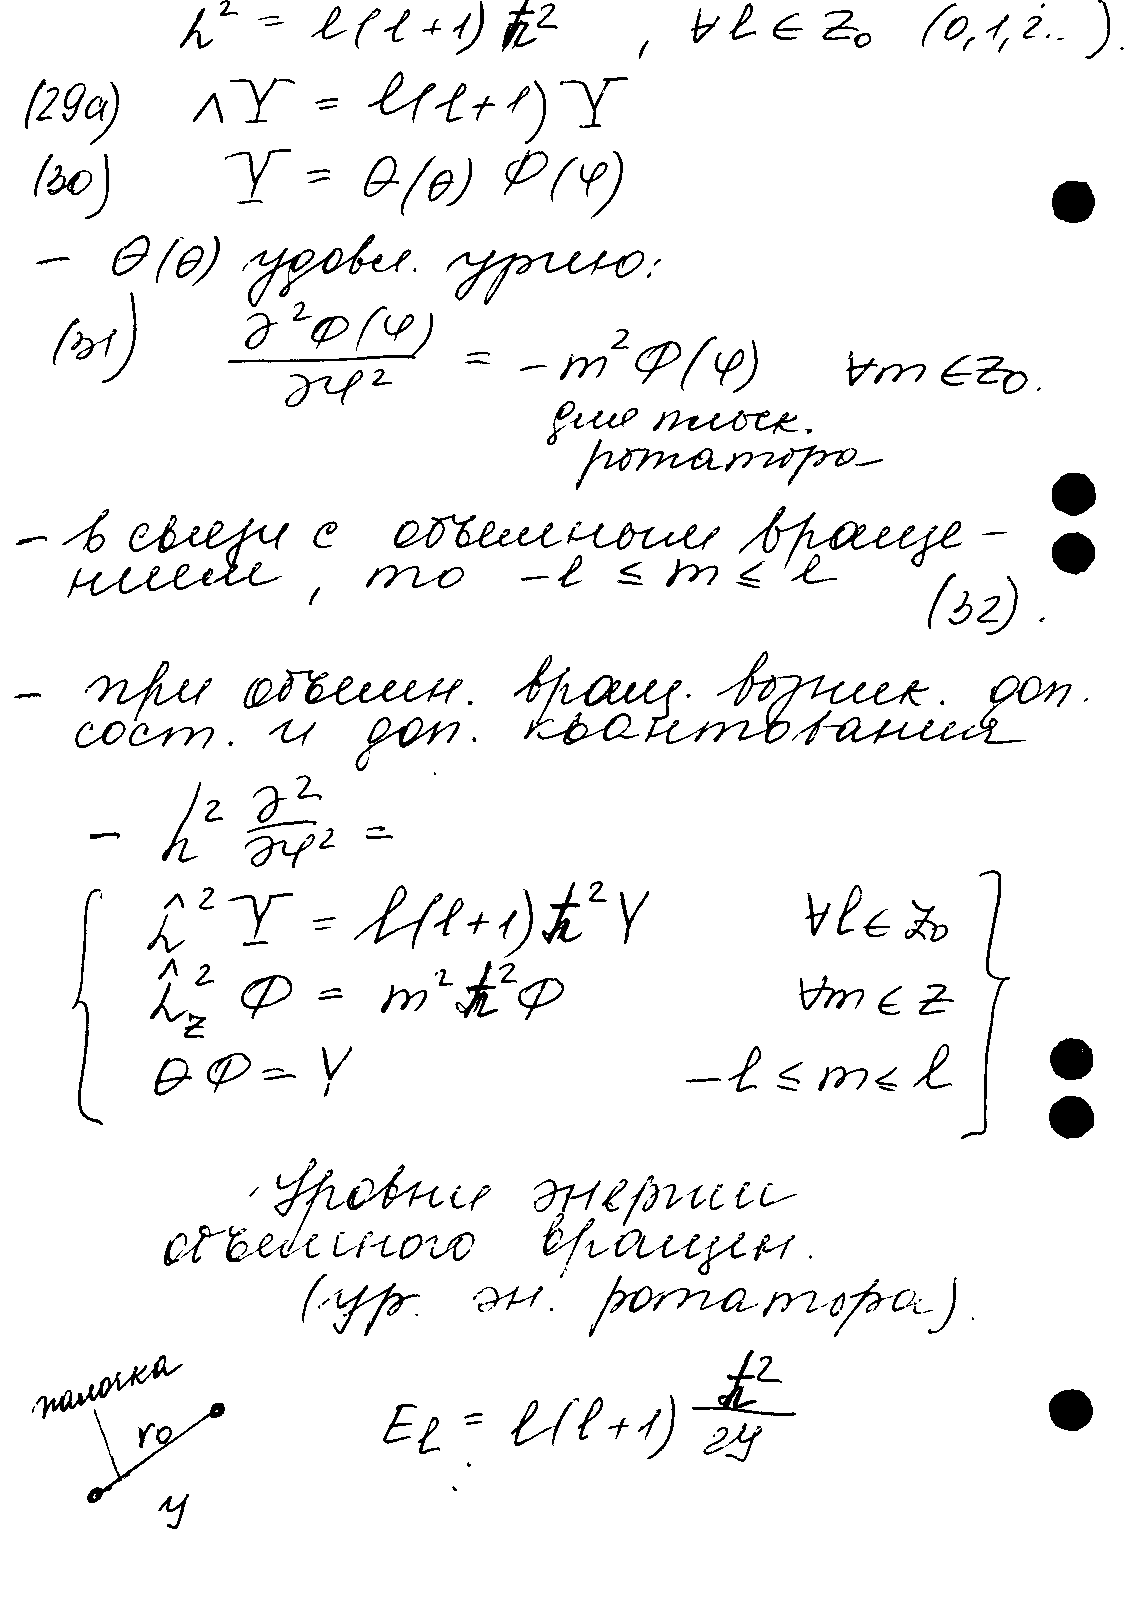 h² = l(l+1)ħ² , ∀l ∈ Z₀ (0,1,2..).
(29а) ΛY = l(l+1)Y
(30) Y = θ(θ) Φ(φ)
– θ(θ) удовл. ур-ию:
(31) ∂²Φ(φ)/∂φ² = –m²Φ(φ) ∀m ∈ Z₀.
для плоск.
ротатора
– в связи с объемным враще-
нием, то –l ≤ m ≤ l
(32).
– при объемн. вращ. возник. доп.
сост. и доп. квантования
– h² ∂²/∂φ² =
ĥ² Y = l(l+1)ħ²Y ∀l ∈ Z₀
ĥ²_z Φ = m²ħ²Φ ∀m ∈ Z
θΦ = Y –l ≤ m ≤ l
Уровни энергии
объемного вращен.
(ур. эн. ротатора).
палочка
r₀
E_l = l(l+1) ħ²/2У
У